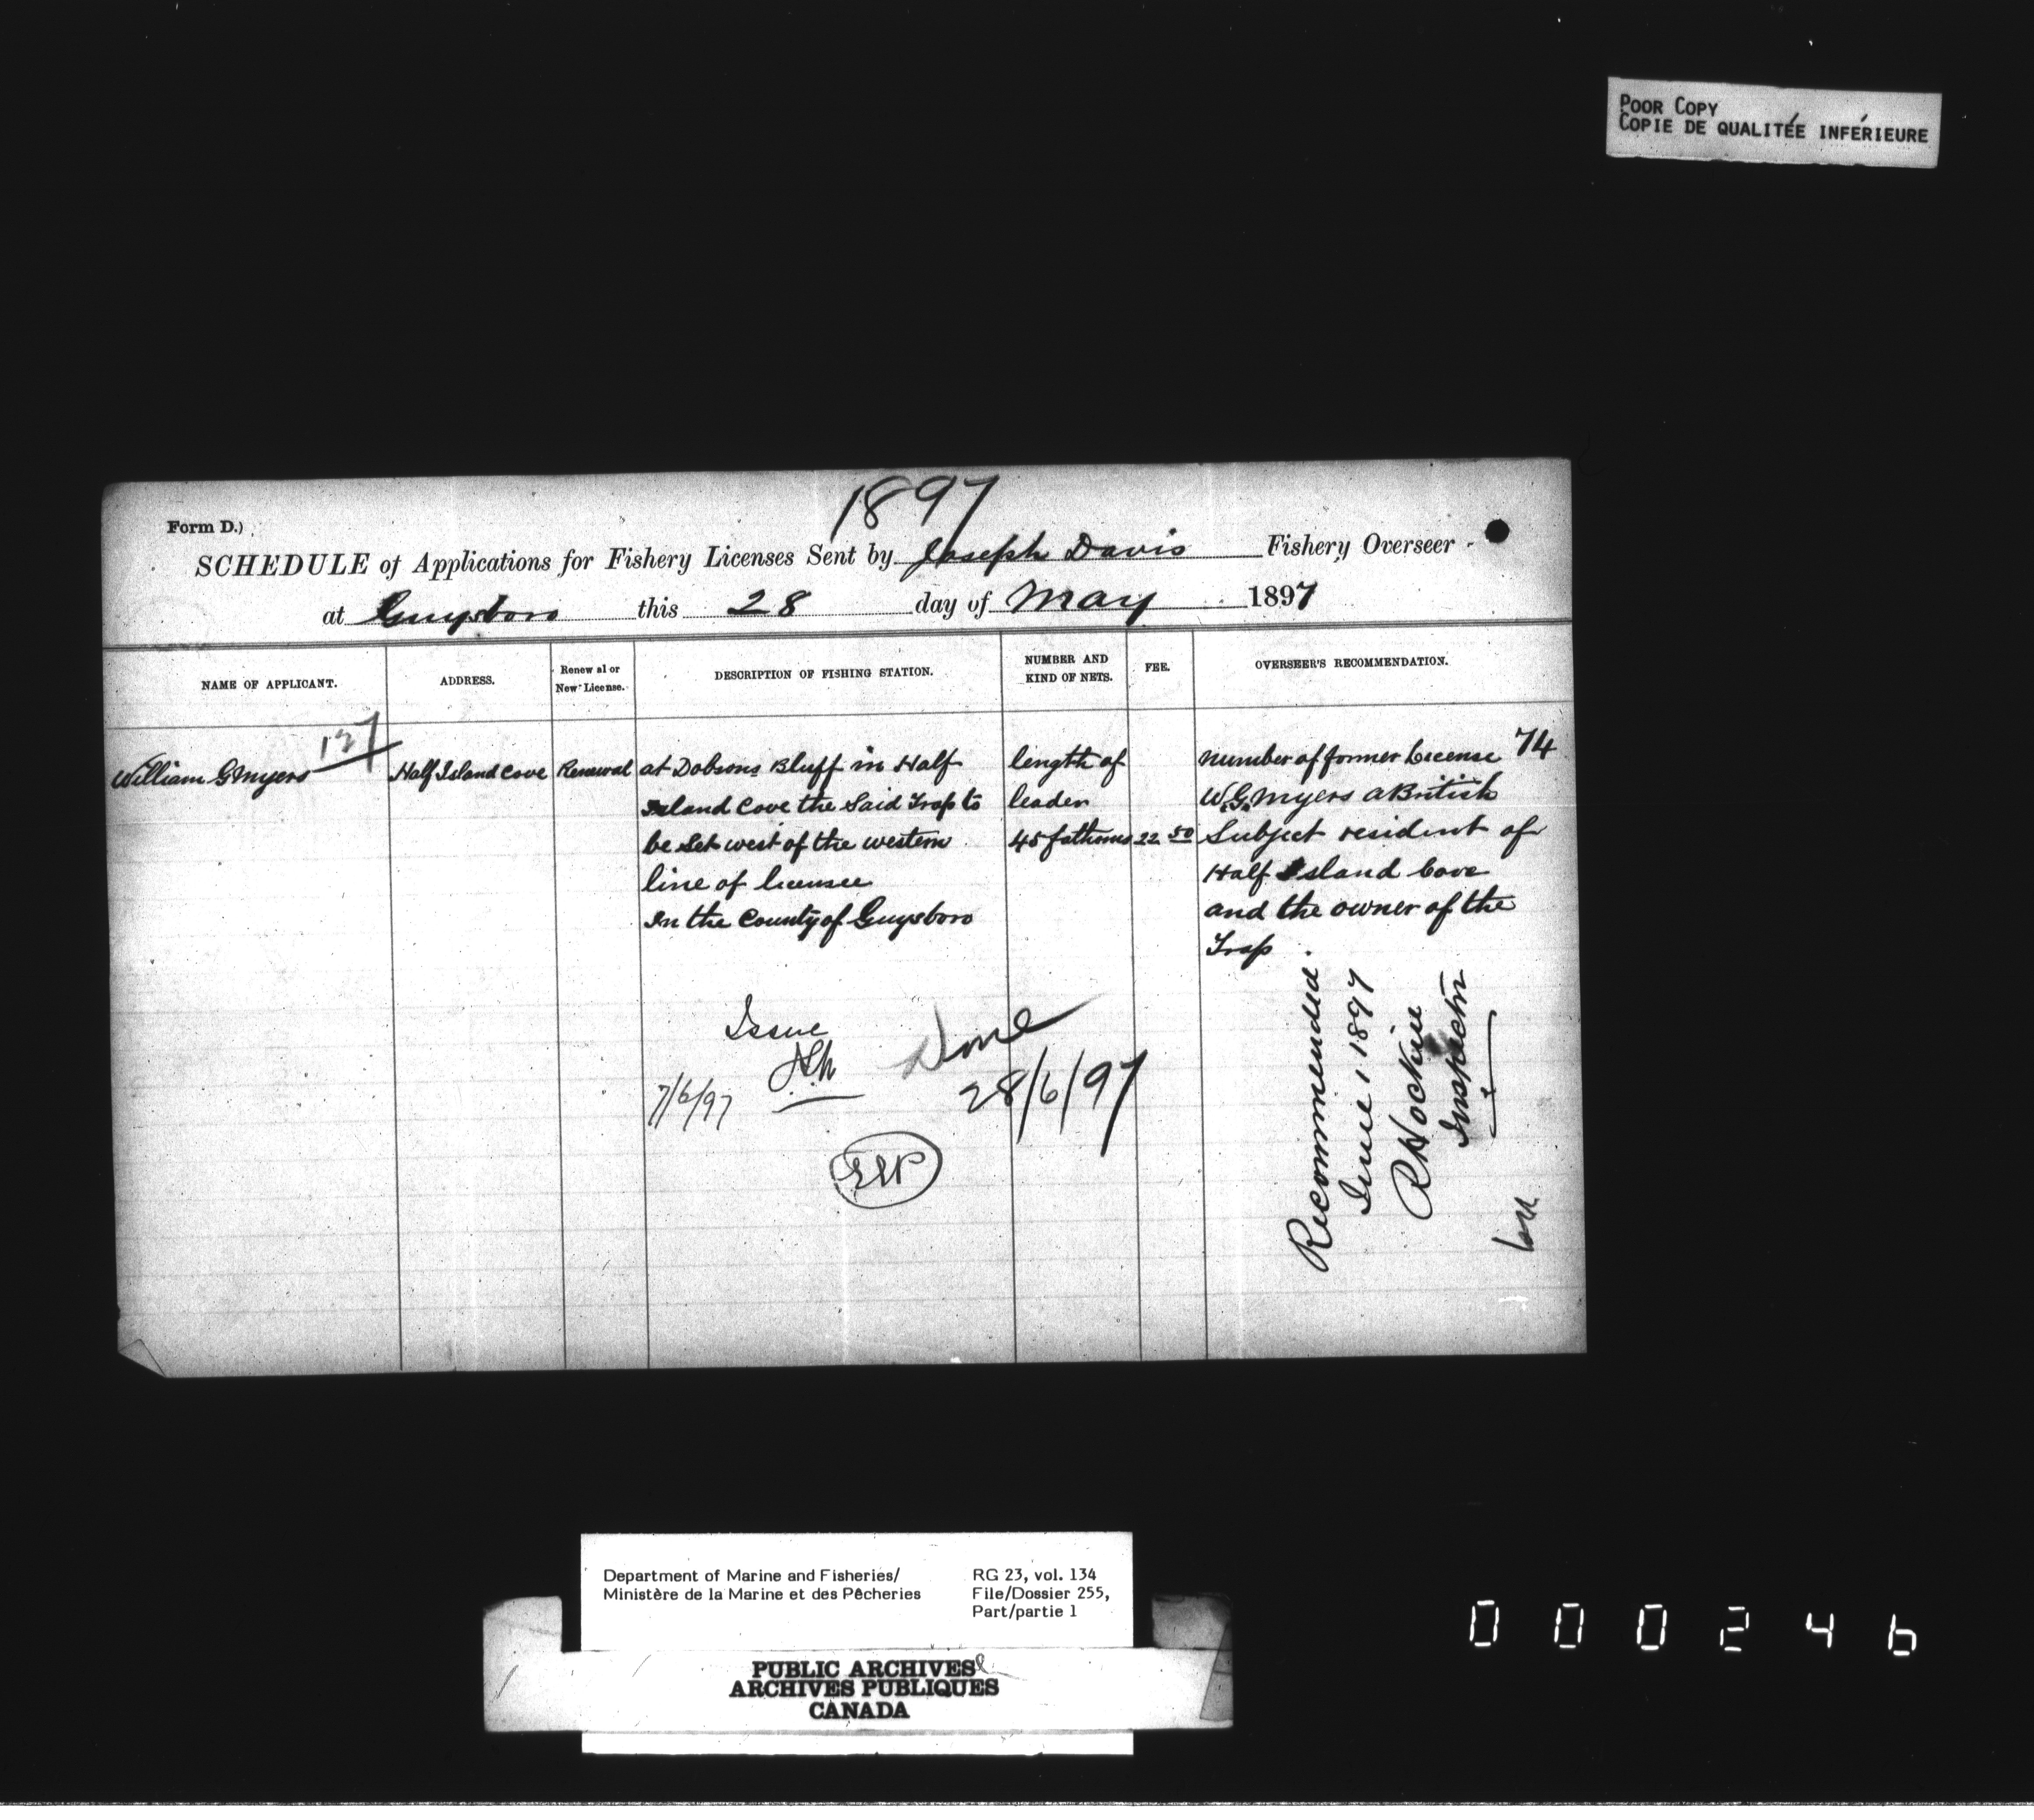 POOR COPY
COPIE DE QUALITÉE INFÉRIEURE
1897
Form D.)
SCHEDULE of Applications for Fishery Licenses Sent by Joseph Davis Fishery Overseer
at Guysboro this 28 day of May 1897
NAME OF APPLICANT.
ADDRESS.
Renewal or
New License.
DESCRIPTION OF FISHING STATION.
NUMBER AND
KIND OF NETS.
FEE.
OVERSEER'S RECOMMENDATION.
127
William G Myers
Half Island Cove
Renewal
at Dobsons Bluff in Half
Island Cove the Said Trap to
be Set west of the western
line of licensee
In the County of Guysboro
length of
leader
45 fathoms
22 50
number of former License 74
W.G. Myers a British
Subject resident of
Half Island Cove
and the owner of the
Trap
Recommended.
June 1 1897
R Hockin
Inspector
Issue
7/6/97
Done
28/6/97
Department of Marine and Fisheries/
Ministère de la Marine et des Pêcheries
RG 23, vol. 134
File/Dossier 255,
Part/partie 1
PUBLIC ARCHIVES
ARCHIVES PUBLIQUES
CANADA
000246